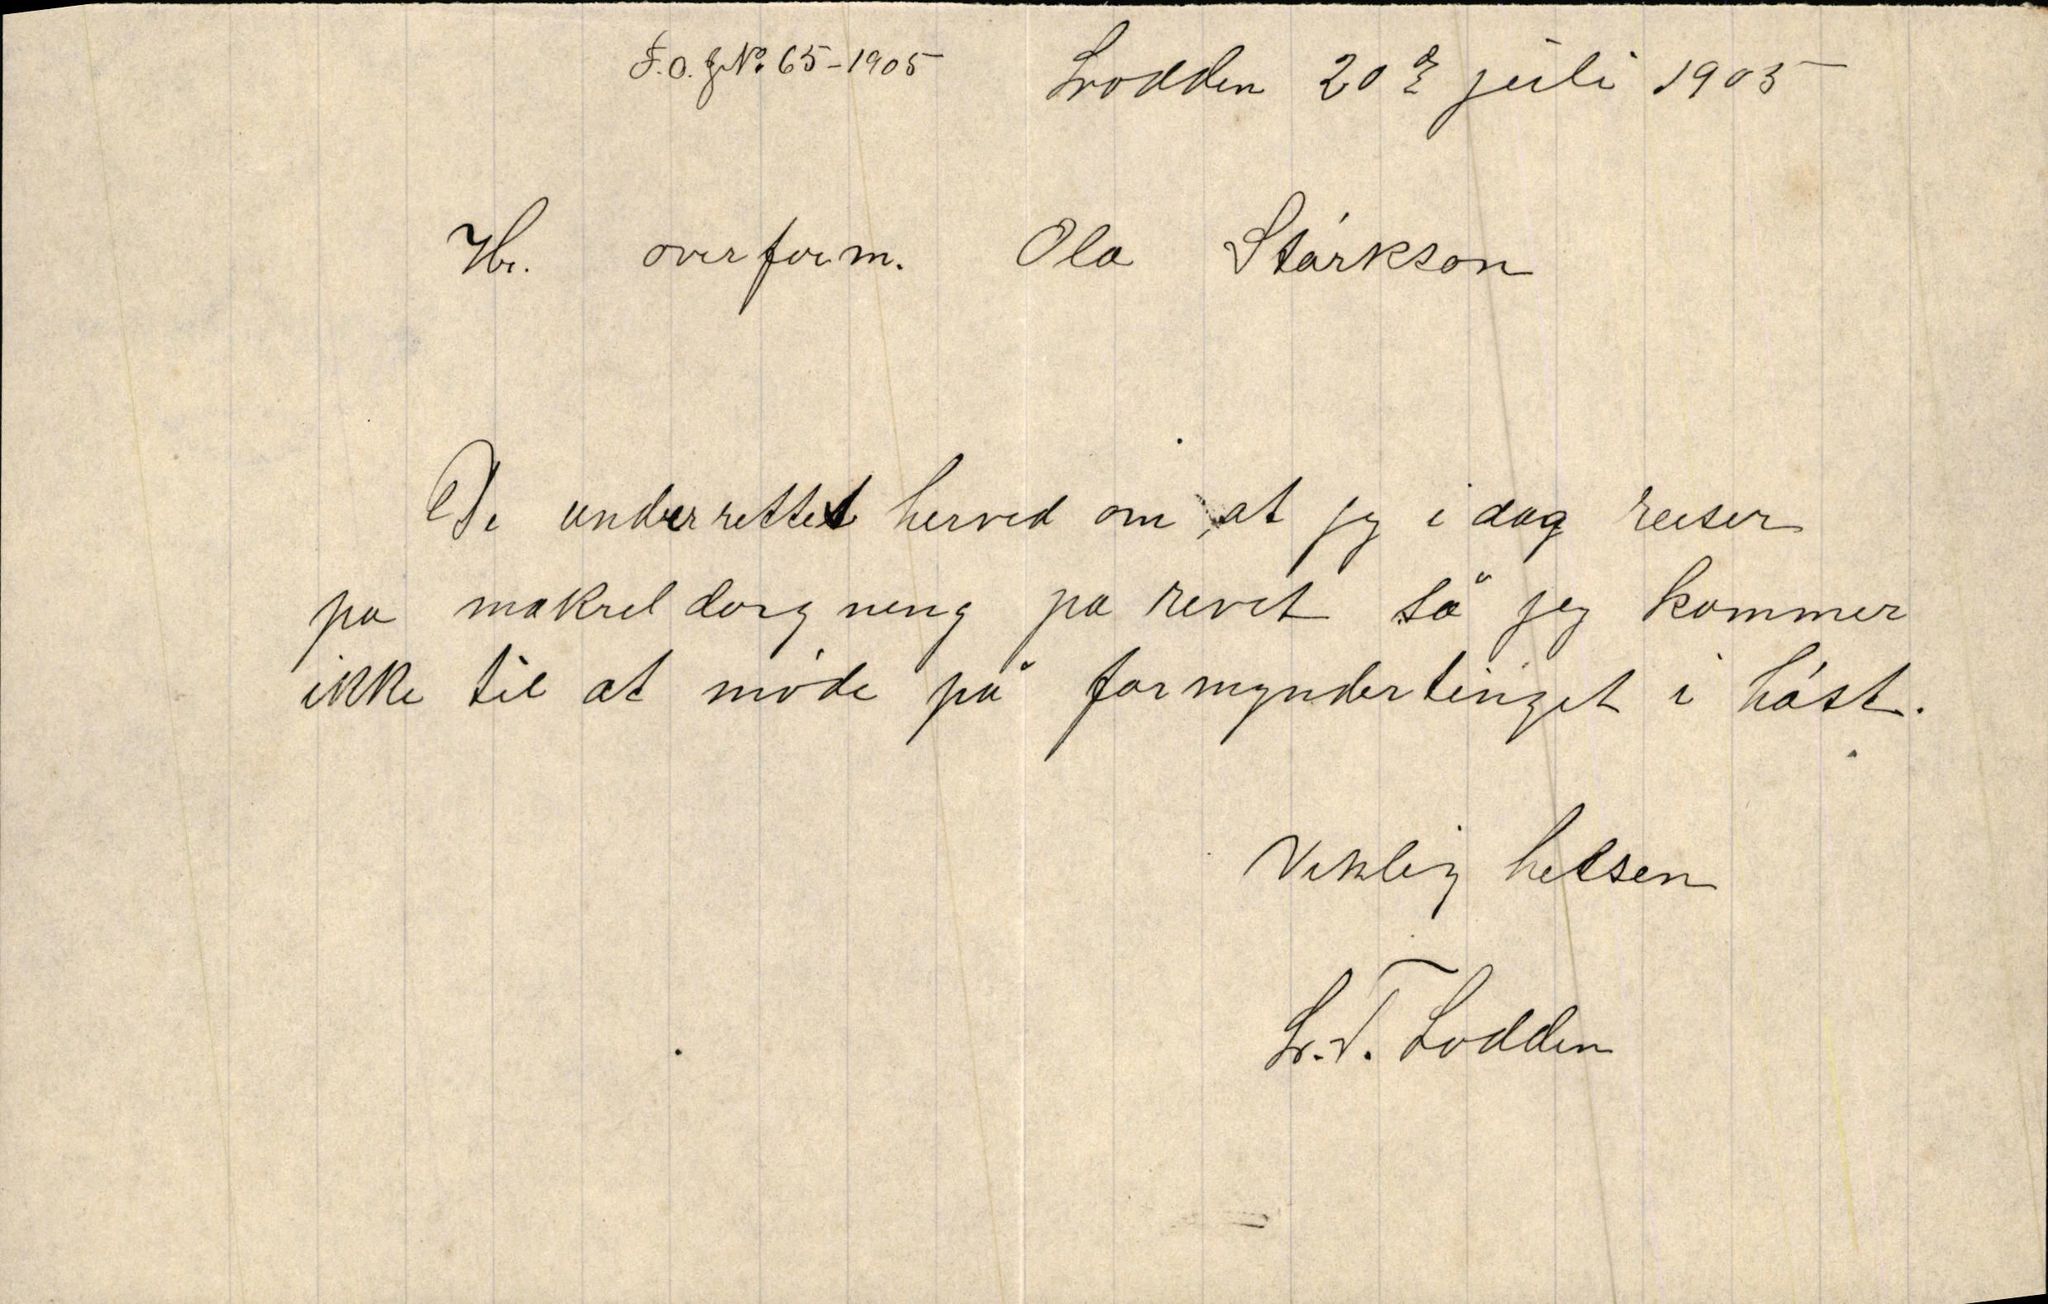 F.O. J.No. 65-1905
Lodden 20de juli 1905
Hr. overform. Ola Stårkson
De underrettet herved om at jeg i dag reiser
pa makreldorgning pa revet så jeg kommer
ikke til at møde på formyndertinget i høst.
Venlig helsen
L. T. Lodden